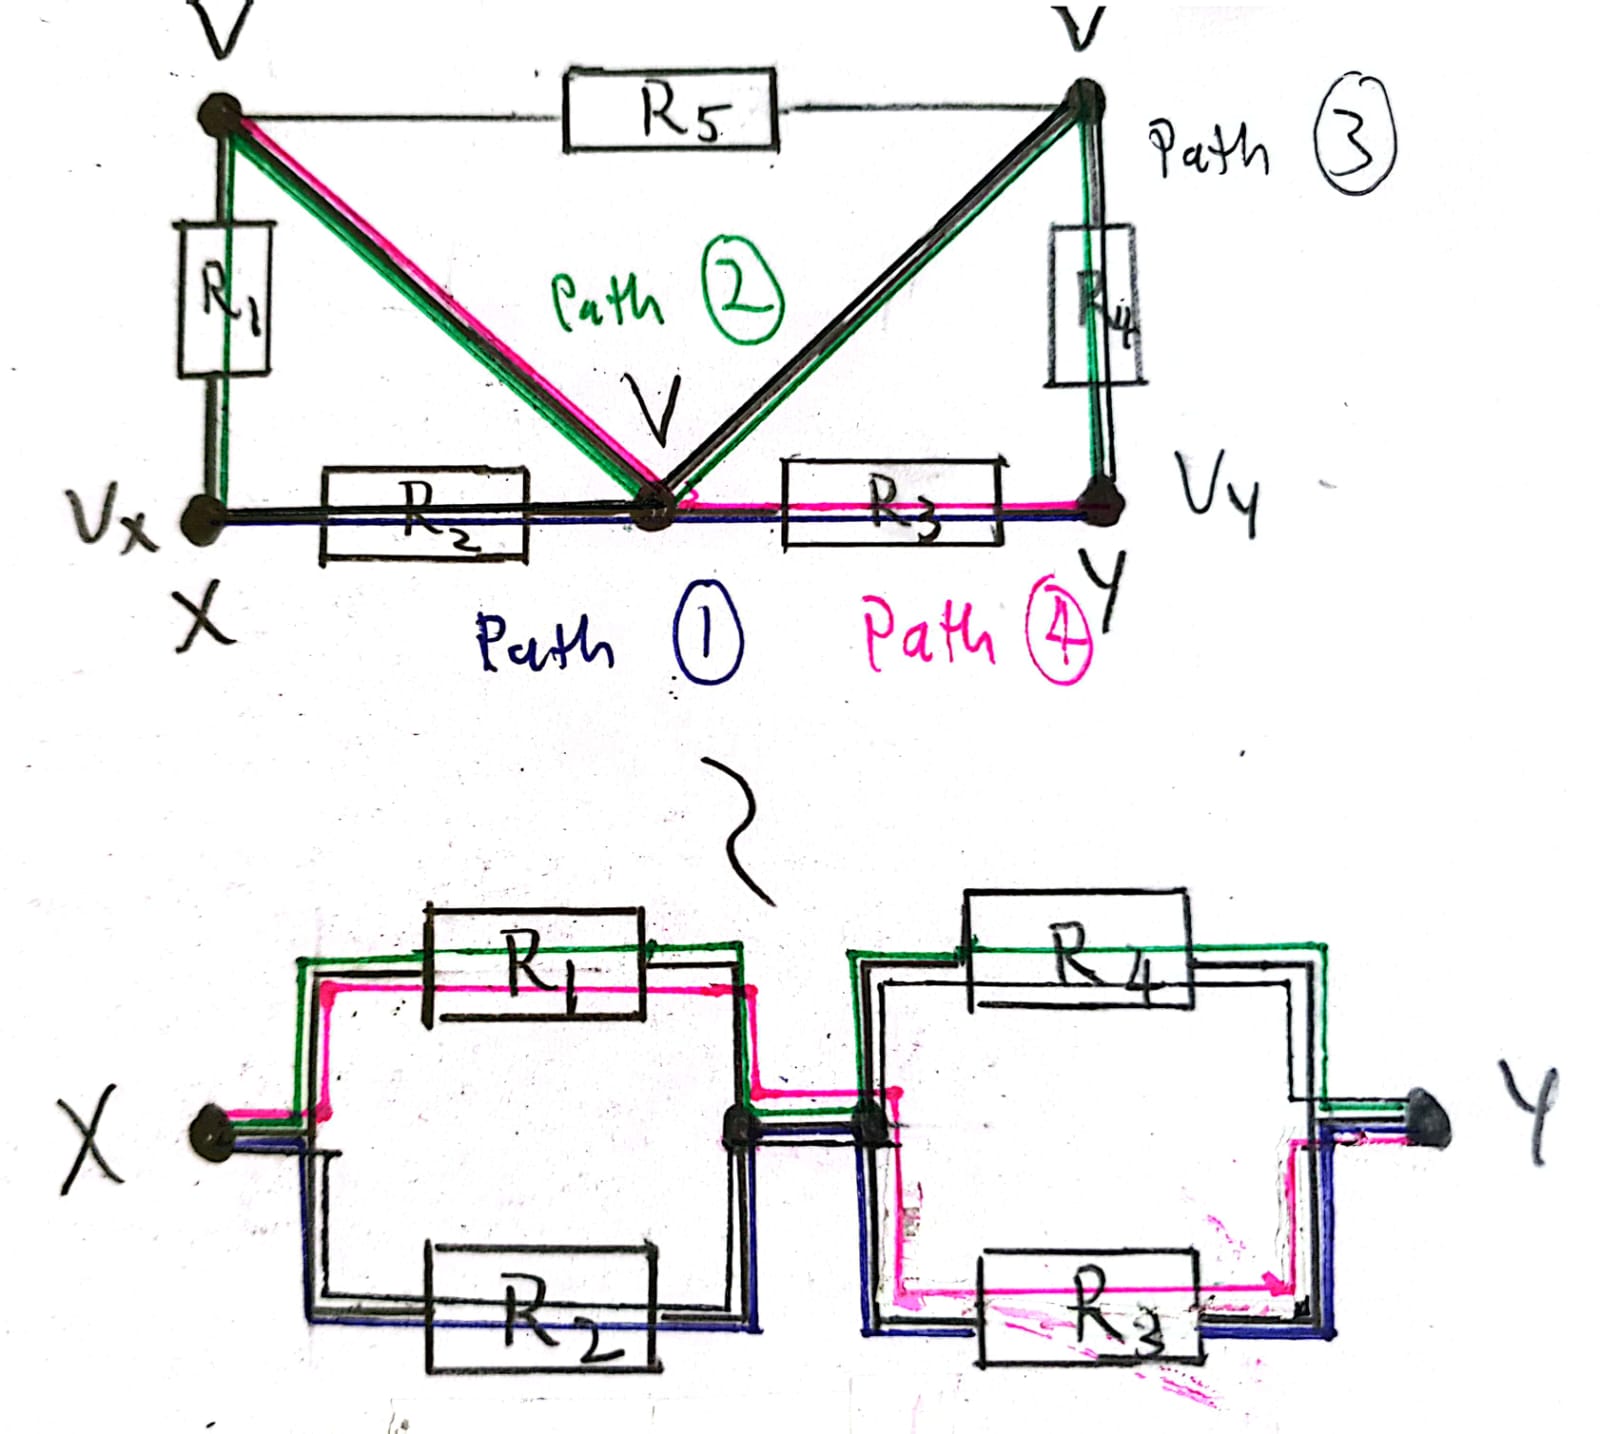 V V
R5
Path ③
R1
Path ②
R4
V
Vx R2 R3 VY
X Y
Path ① Path ④
R1 R4
X Y
R2 R3